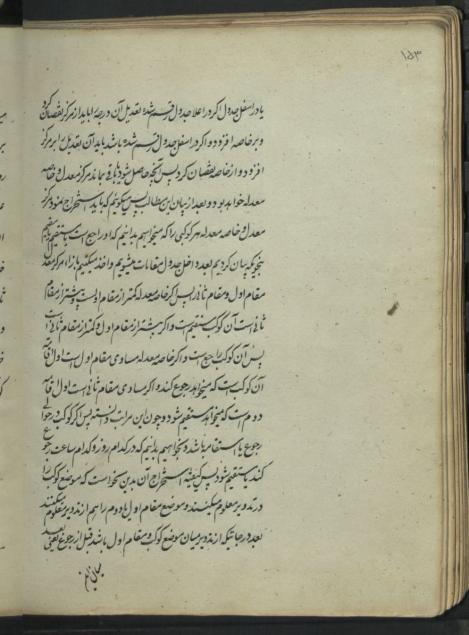 ۱۵۳
یا در اسفل جدول اگر در اعلا جدول قسم شده تعدیل آن درجه را باید از مرکز نقصان کرد
و بر خاصه افزود و اگر در اسفل جدول قسم شده باشد باید آن تعدیل را بر مرکز
افزود و از خاصه نقصان کرد پس آنچه حاصل شود یا باقی بماند مرکز معدل و خاصه
معدله خواهد بود و بعد از بیان این مطالب پس میگوئیم که باید استخراج نمود مرکز
معدل و خاصه معدله هر کوکبی را که میخواهیم بدانیم که او راجع است یا مستقیم
بنحویکه بیان کردیم بعد داخل جدول مقامات میشویم و اخذ میکنیم بازاء مرکز معدل
مقام اول و مقام ثانی را پس اگر خاصه معدله کمتر از مقام اولست و بیشتر از مقام
ثانی است آن کوکب مستقیم است و اگر بیشتر از مقام اول و کمتر از مقام ثانی است
پس آن کوکب راجع است و اگر خاصه معدله مساوی مقام اول است اول
آن کوکب است که میخواهد رجوع کند و اگر مساوی مقام ثانی است اول
دوم است که میخواهد مستقیم شود و چون این مراتب دانسته پس اگر کوکب در حوالی
رجوع یا استقامه باشد و بخواهیم بدانیم که در کدام روز و کدام ساعت رجوع
کند یا مستقیم شود پس کیفیة استخراج آن بدین نحو است که موضع کوکب را
در تدویر معلوم میکنند و موضع مقام اول یا دوم را هم از تدویر معلوم میکنند
بعد درجاتیکه از تدویر میان موضع کوکب و مقام اول باشد قبل از رجوع یعنی